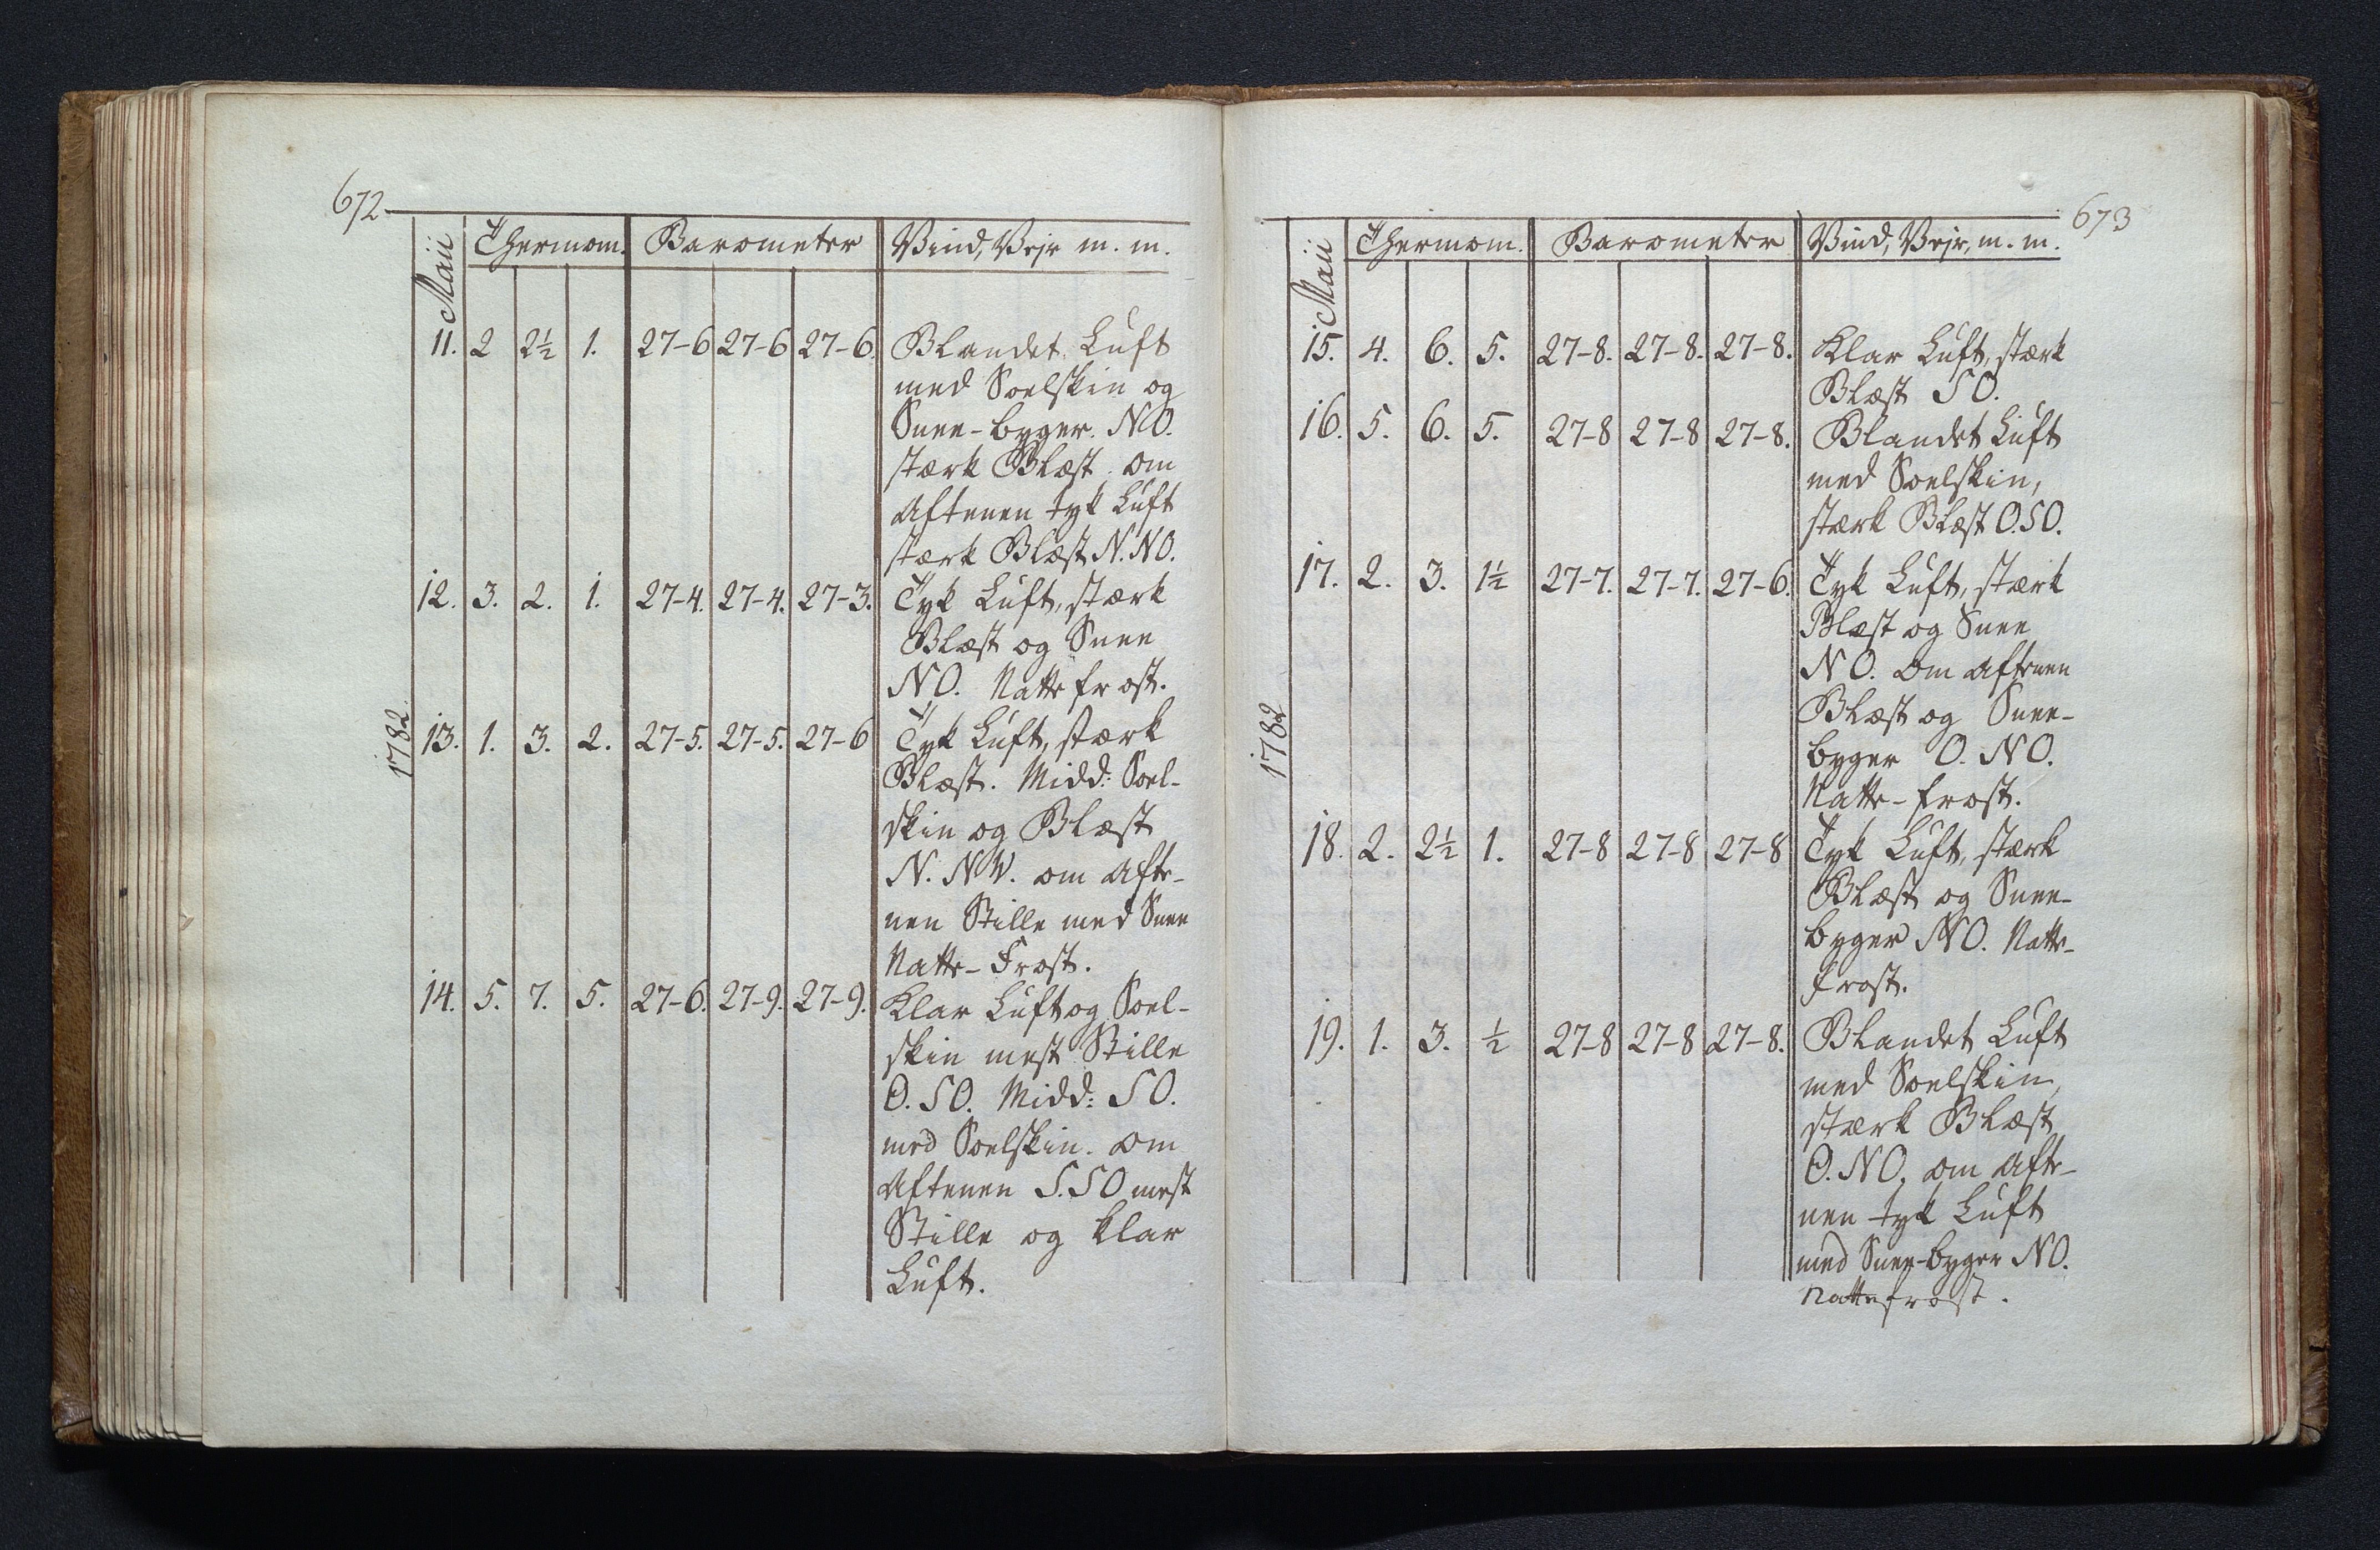 672
Maii Thermom. Barometer Vind, Vejr m. m.
11. 2 2½ 1. 27-6 27-6 27-6. Blandet Luft
med Soelskin og
Snee-byger. NO.
stærk Blæst. om
Aftenen tyk Luft
stærk Blæst N.NO.
12. 3. 2. 1. 27-4. 27-4. 27-3. Tyk Luft, stærk
Blæst og Snee
NO. Natte frost.
1782.
13. 1. 3. 2. 27-5. 27-5. 27-6 Tyk Luft, stærk
Blæst. Midd: Soel-
skin og Blæst
N. NW. om Afte-
nen Stille med Snee
Natte-Frost.
14. 5. 7. 5. 27-6. 27-9. 27-9. Klar Luft og Soel-
skin mest Stille
O. SO. Midd: SO.
med Soelskin. om
Aftenen S.SO mest
Stille og klar
Luft.
673
Maii Thermom. Barometer Vind, Vejr, m. m.
15. 4. 6. 5. 27-8. 27-8. 27-8. Klar Luft, stærk
Blæst SO.
16. 5. 6. 5. 27-8 27-8 27-8. Blandet Luft
med Soelskin,
stærk Blæst O.SO.
17. 2. 3. 1½ 27-7. 27-7. 27-6. Tyk Luft, stærk
Blæst og Snee
NO. Om Aftenen
Blæst og Snee-
byger O. NO.
Natte-frost.
1782
18. 2. 2½ 1. 27-8 27-8 27-8 Tyk Luft, stærk
Blæst og Snee-
byger NO. Natte-
frost.
19. 1. 3. ½ 27-8 27-8 27-8. Blandet Luft
med Soelskin,
stærk Blæst
O. NO. om Afte-
nen tyk Luft
med Snee-byger NO.
Nattefrost.